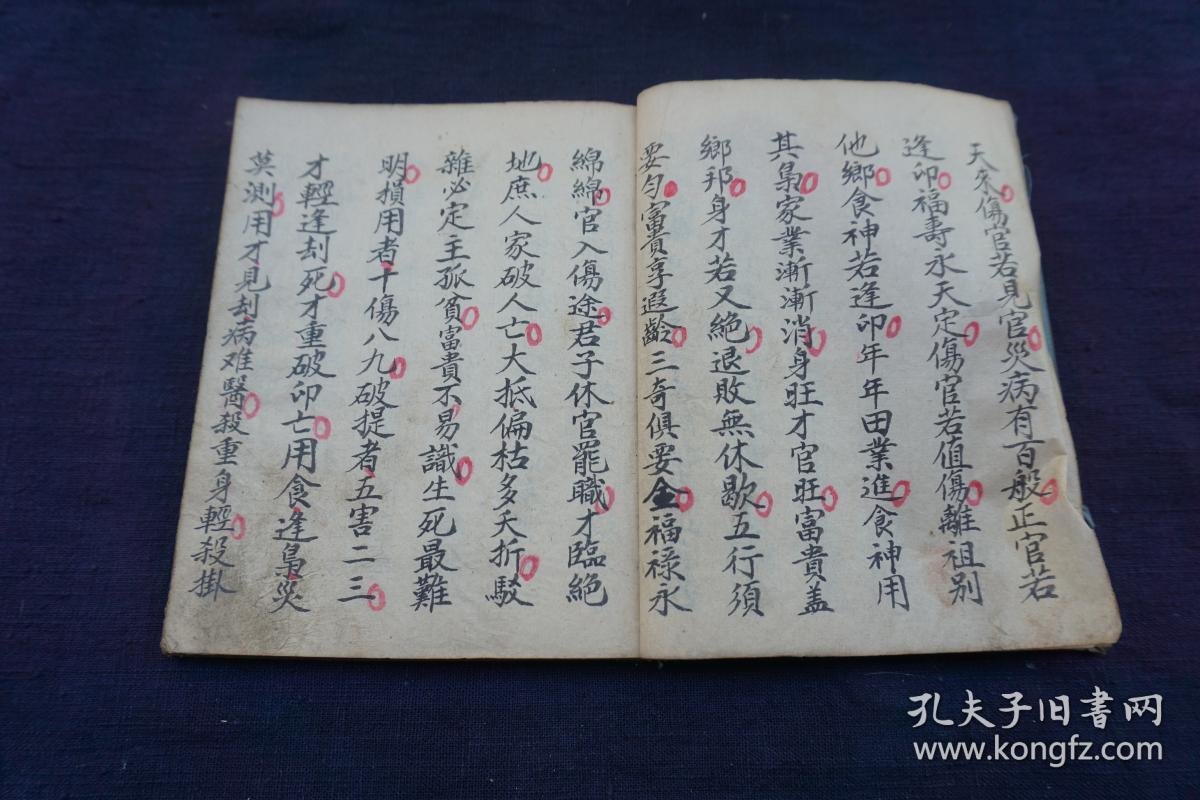 天來傷官若見官災病有百般正官若
逢卯福壽永天定傷官若值傷離祖别
他鄉食神若逢卯年年田業進食神用
其梟家業漸漸消身旺才官旺富貴盖
鄉邦身才若又絕退敗無休歇五行須
要勻富貴享遐齡三奇俱要全福禄永
綿綿官入傷途君子休官罷職才臨絕
地庶人家破人亡大抵偏枯多夭折駁
雜必定主孤貧富貴不易識生死最難
明損用者十傷八九破提者五害二三
才輕逢刦死才重破卯亡用食逢梟災
莫測用才見刦病难醫殺重身輕殺掛
孔夫子旧书网
www.kongfz.com